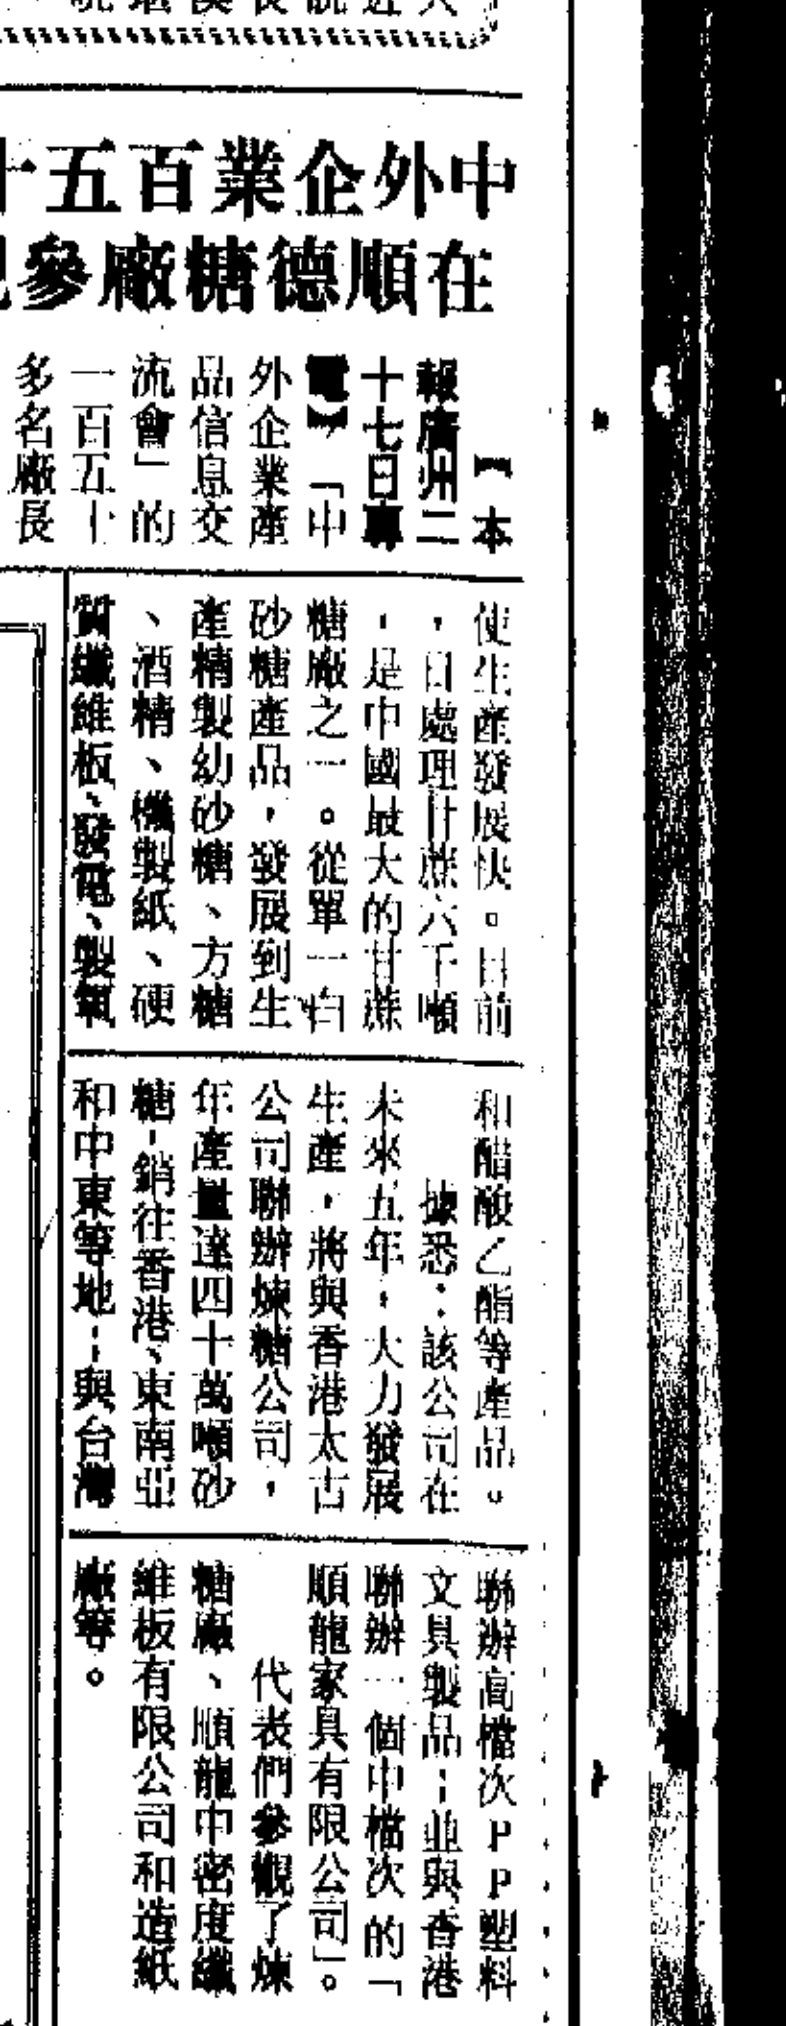 中外企業百五十
在順德糖廠參
【本
報廣州二
十七日專
電】「中
外企業產
品信息交
流會」的
一百五十
多名廠長
使生產發展快。目前
，日處理甘蔗六千噸
，是中國最大的甘蔗
糖廠之一。從單一白
砂糖產品，發展到生
產精製幼砂糖、方糖
、酒精、機製紙、硬
質纖維板、發電、製氧
和醋酸乙酯等產品。
據悉：該公司在
未來五年，大力發展
生產，將與香港太古
公司聯辦煉糖公司，
年產量達四十萬噸砂
糖，銷往香港、東南亞
和中東等地；與台灣
聯辦高檔次PP塑料
文具製品；並與香港
聯辦一個中檔次的「
順龍家具有限公司」。
代表們參觀了煉
糖廠、順龍中密度纖
維板有限公司和造紙
廠等。